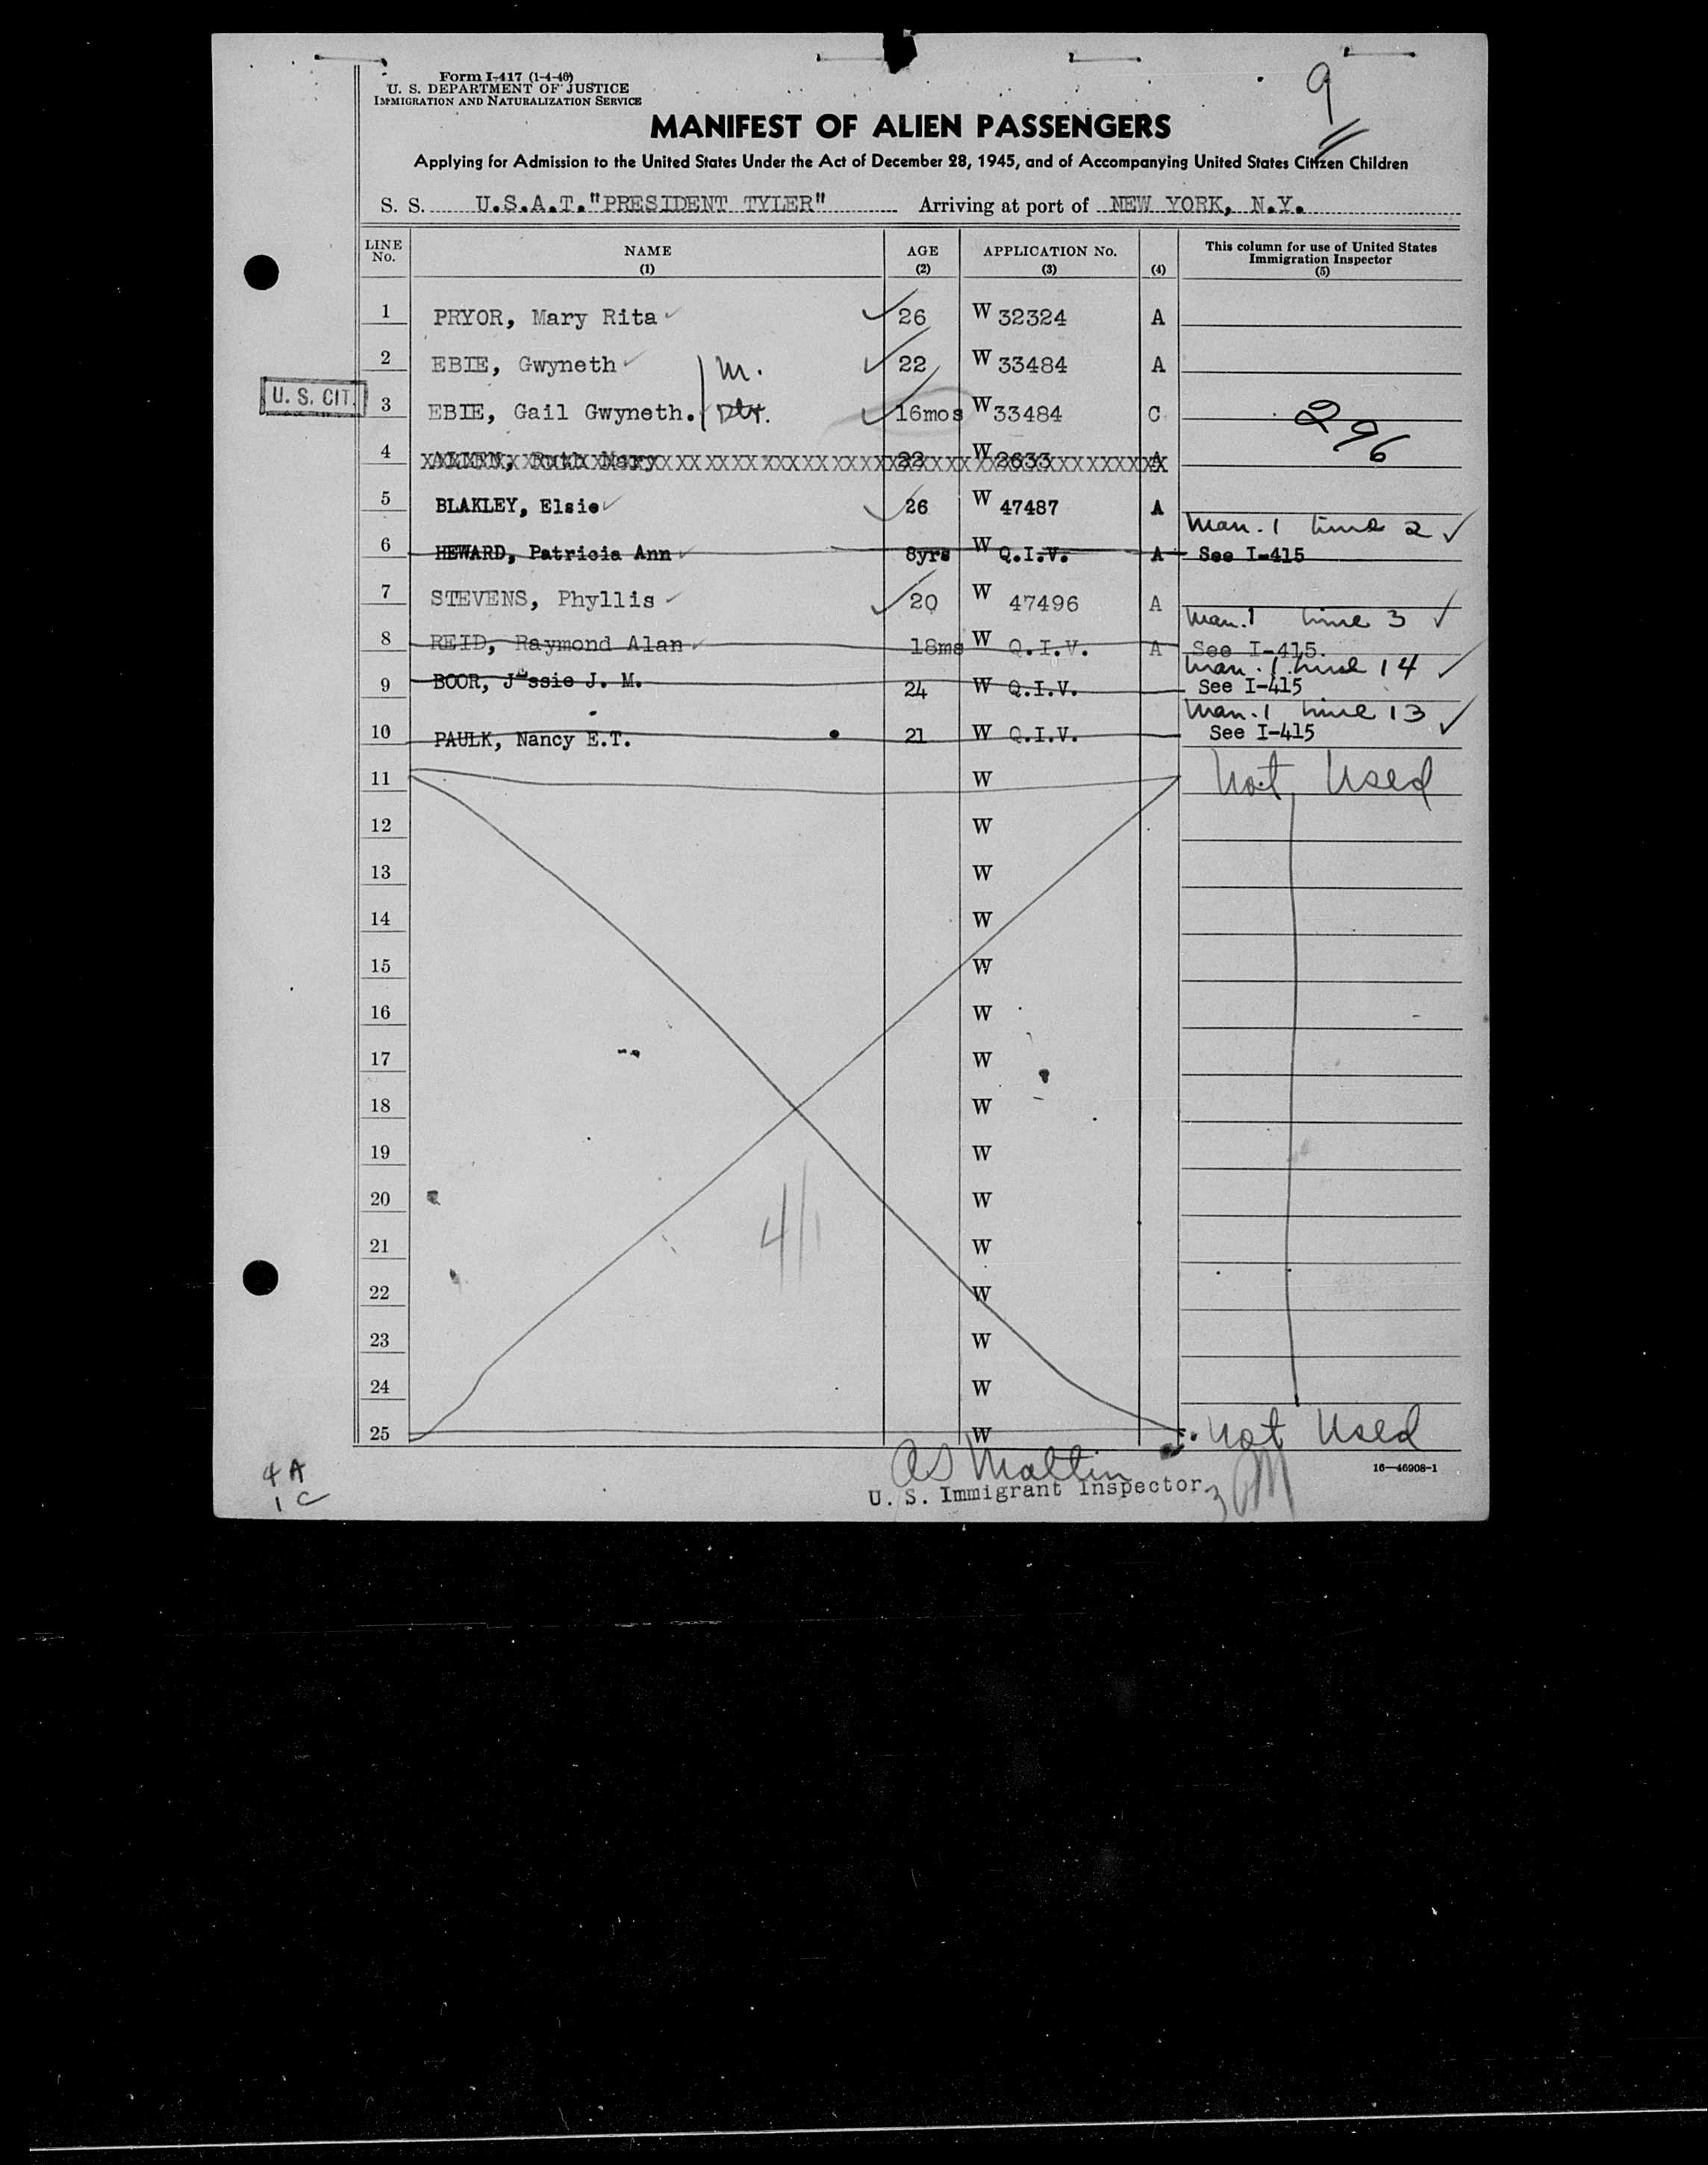 9
Form I-417 (1-4-46)
U. S. DEPARTMENT OF JUSTICE
IMMIGRATION AND NATURALIZATION SERVICE
MANIFEST OF ALIEN PASSENGERS
Applying for Admission to the United States Under the Act of December 28, 1945, and of Accompanying United States Citizen Children
S. S. U.S.A.T."PRESIDENT TYLER" Arriving at port of NEW YORK, N.Y.
LINE No. NAME (1) AGE (2) APPLICATION No. (3) (4) This column for use of United States Immigration Inspector (5)
1 PRYOR, Mary Rita 26 W 32324 A
2 EBIE, Gwyneth M. 22 W 33484 A
U. S. CIT. 3 EBIE, Gail Gwyneth. Dtr. 16mos W 33484 C 296
4 Ruth Mary 22 W 2633 A
5 BLAKLEY, Elsie 26 W 47487 A
Man. 1 line 2
6 HEWARD, Patricia Ann 8yrs W Q.I.V. A See I-415
7 STEVENS, Phyllis 20 W 47496 A
Man. 1 line 3
8 REID, Raymond Alan 18ms W Q.I.V. A See I-415.
Man. 1 line 14
9 BOOR, Jessie J. M. 24 W Q.I.V. See I-415
Man. 1 line 13
10 PAULK, Nancy E.T. 21 W Q.I.V. See I-415
11 W Not Used
12 W
13 W
14 W
15 W
16 W
17 W
18 W
19 W
20 W
21 W
22 W
23 W
24 W
25 W Not Used
4/1
16—46908-1
4 A
1 C
U. S. Immigrant Inspector